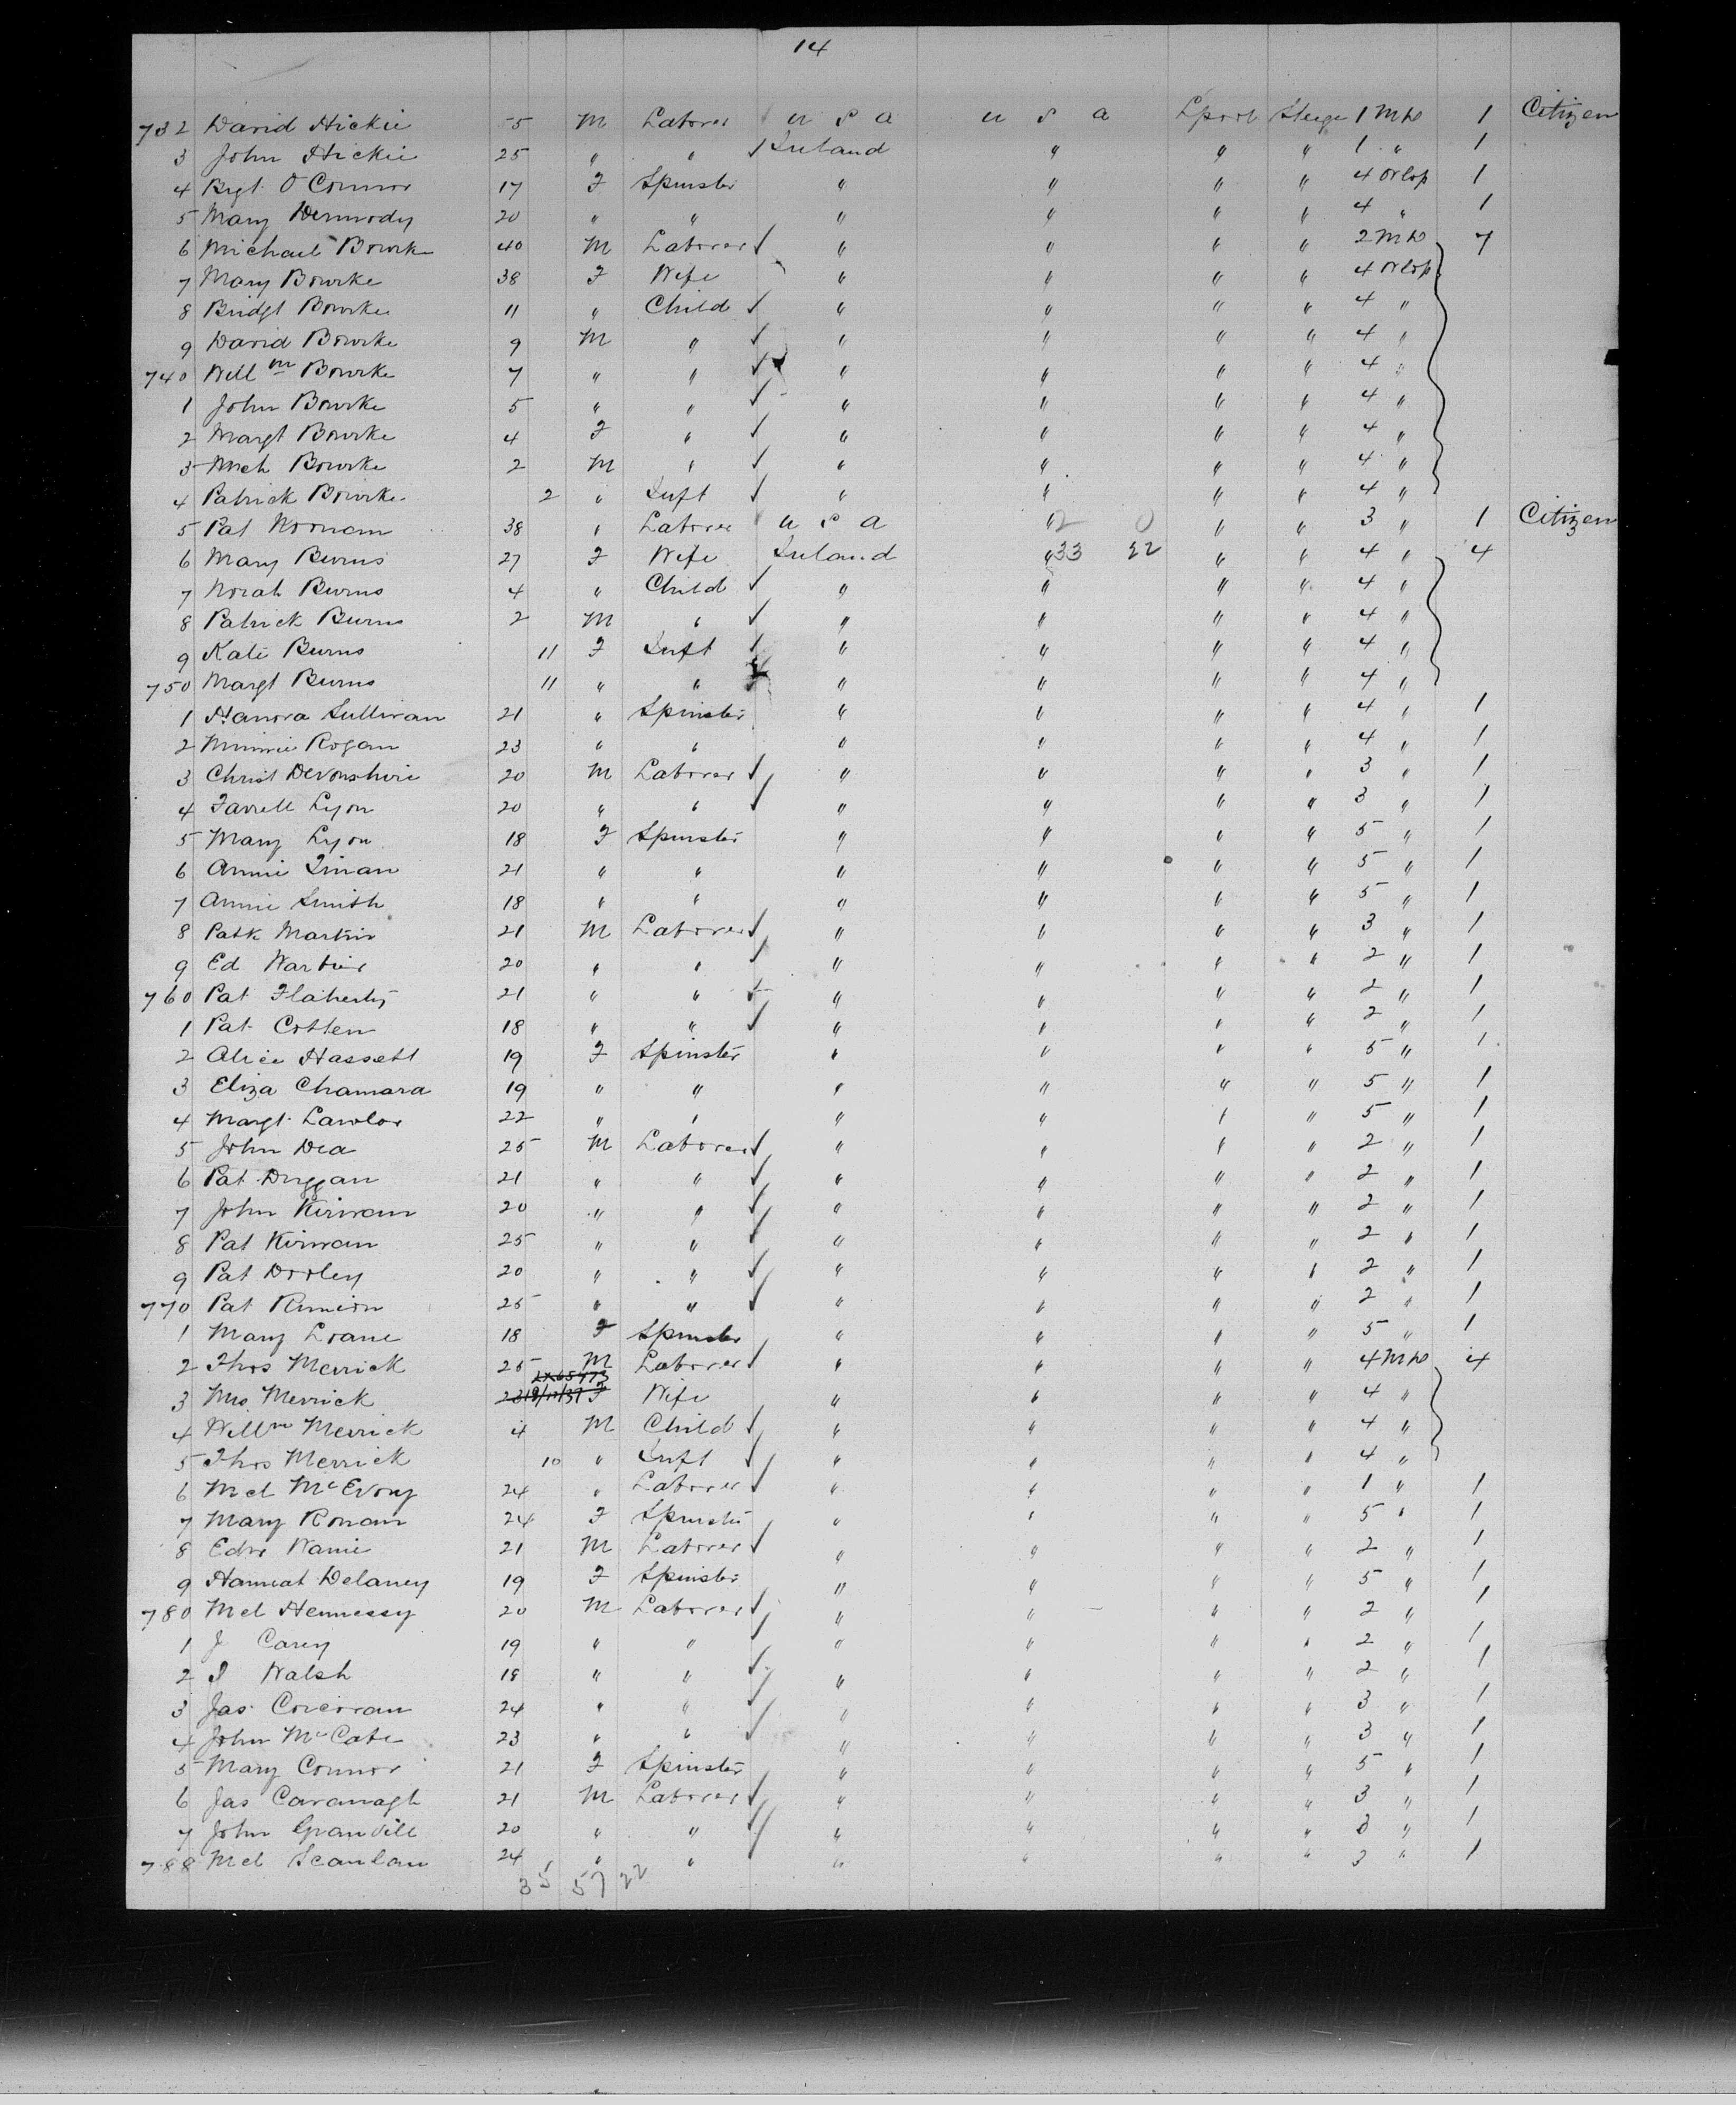 14
732 David Hickie 55 M Laborer U S A U S A Lpool Steege 1 M D 1 Citizen
3 John Hickie 25 " " ✓ Ireland " " " 1 " 1
4 Brgt. O Connor 17 F Spinster " " " " 4 Orlop 1
5 Mary Dermody 20 " " " " " " 4 " 1
6 Michael Bourke 40 M Laborer ✓ " " " " 2 M D 7
7 Mary Bourke 38 F Wife " " " " 4 Orlop
8 Bridgt Bourke 11 " Child ✓ " " " " 4 "
9 David Bourke 9 M " ✓ " " " " 4 "
740 Willm Bourke 7 " " ✓ " " " " 4 "
1 John Bourke 5 " " ✓ " " " " 4 "
2 Margt Bourke 4 F " ✓ " " " " 4 "
3 Mich Bourke 2 M " ✓ " " " " 4 "
4 Patrick Bourke 2 " Inft ✓ " " " " 4 "
5 Pat Noonan 38 " Laborer U S A " 2 0 " " 3 " 1 Citizen
6 Mary Burns 27 F Wife Ireland " 33 22 " " 4 " 4
7 Norah Burns 4 " Child ✓ " " " " 4 "
8 Patrick Burns 2 M " ✓ " " " " 4 "
9 Kate Burns 11 F Inft ✓ " " " " 4 "
750 Margt Burns 11 " " ✓ " " " " 4 "
1 Hanora Sullivan 21 " Spinster " " " " 4 " 1
2 Minnie Rogan 23 " " " " " " 4 " 1
3 Christ Devonshire 20 M Laborer ✓ " " " " 3 " 1
4 Farrell Lyon 20 " " ✓ " " " " 3 " 1
5 Mary Lyon 18 F Spinster " " " " 5 " 1
6 Annie 21 " " " " " " 5 " 1
7 Annie Smith 18 " " " " " " 5 " 1
8 Patk Martin 21 M Laborer ✓ " " " " 3 " 1
9 Ed 20 " " ✓ " " " " 2 " 1
760 Pat Flaherty 21 " " " " " " 2 " 1
1 Pat Cotten 18 " " ✓ " " " " 2 " 1
2 Alice Hassett 19 F Spinster " " " " 5 " 1
3 Eliza Chamara 19 " " " " " " 5 " 1
4 Margt. Lawlor 22 " " " " " " 5 " 1
5 John Dea 25 M Laborer ✓ " " " " 2 " 1
6 Pat Duggan 21 " " ✓ " " " " 2 " 1
7 John Kirwan 20 " " ✓ " " " " 2 " 1
8 Pat Kirwan 25 " " ✓ " " " " 2 " 1
9 Pat Dooley 20 " " ✓ " " " " 2 " 1
770 Pat 25 " " ✓ " " " " 2 " 1
1 Mary Loane 18 F Spinster " " " " 5 " 1
2 Thos Merrick 25 M Laborer ✓ " " " " 4 M D 4
3 Mrs. Merrick 23 F Wife " " " " 4 "
4 Willm Merrick 4 M Child ✓ " " " " 4 "
5 Thos Merrick 10 " Inft ✓ " " " " 4 "
6 Mcl McEvoy 24 " Laborer ✓ " " " " 1 " 1
7 Mary Ronan 24 F Spinster " " " " 5 " 1
8 Edw 21 M Laborer ✓ " " " " 2 " 1
9 Hannah Delaney 19 F Spinster " " " " 5 " 1
780 Mcl Hennessy 20 M Laborer ✓ " " " " 2 " 1
1 J Carey 19 " " ✓ " " " " 2 " 1
2 J Walsh 18 " " ✓ " " " " 2 " 1
3 Jas. Corcoran 24 " " ✓ " " " " 3 " 1
4 John McCabe 23 " " ✓ " " " " 3 " 1
5 Mary Connor 21 F Spinster " " " " 5 " 1
6 Jas Cavanagh 21 M Laborer ✓ " " " " 3 " 1
7 John Granville 20 " " ✓ " " " " 3 " 1
788 Mcl Scanlan 24 " " " " " " 3 " 1
35 57 22